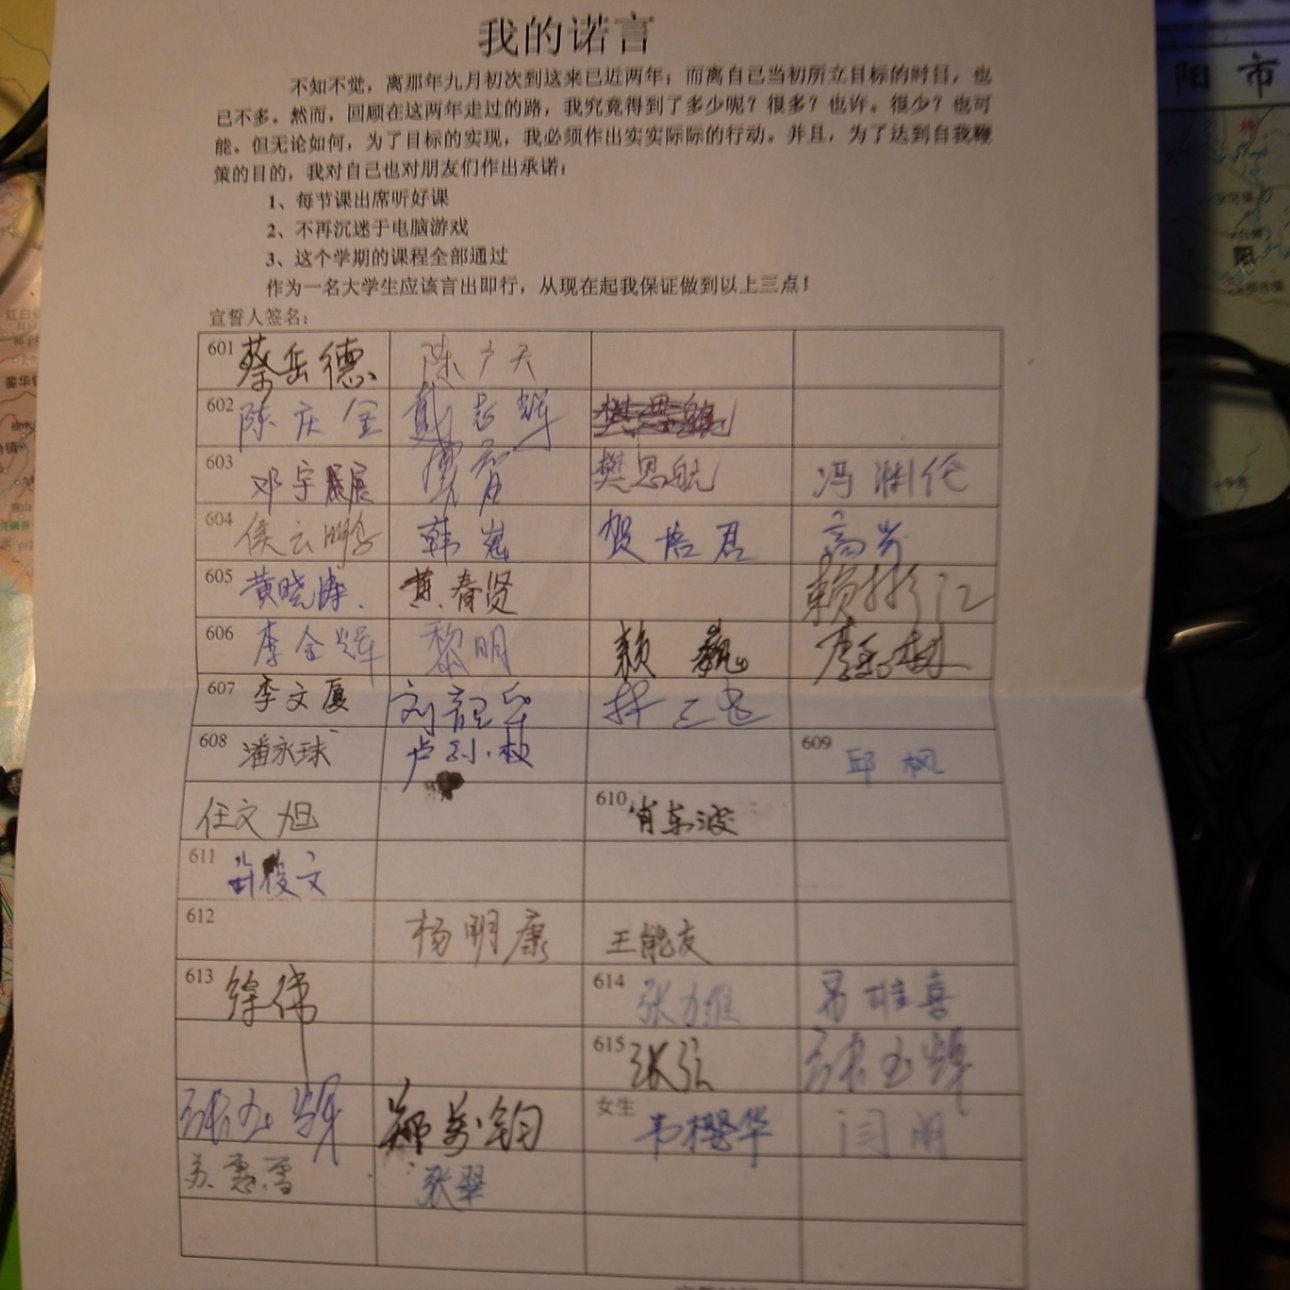 我的诺言
不知不觉，离那年九月初次到这来已近两年；而离自己当初所立目标的时日，也
已不多。然而，回顾在这两年走过的路，我究竟得到了多少呢？很多？也许。很少？也可
能。但无论如何，为了目标的实现，我必须作出实实际际的行动。并且，为了达到自我鞭
策的目的，我对自己也对朋友们作出承诺：
1、每节课出席听好课
2、不再沉迷于电脑游戏
3、这个学期的课程全部通过
作为一名大学生应该言出即行，从现在起我保证做到以上三点！
宣誓人签名：
601 蔡岳德 陈广天
602 陈庆金
603 邓宇展 樊恩航 冯渊伦
604 侯云鹏 韩嵬 贺培君
605 黄晓涛 黄春贤 赖彬江
606 李金辉 黎明 赖巍
607 李文厦
608 潘永球 609 邱枫
任文旭 610 肖东波
611 许俊文
612 杨明康 王能友
613 徐伟 614 张力维 易雄喜
615 张弦 张玉辉
张玉辉 郑万钧 女生 韦樱华 闫明
苏惠雪 张翠
阳市
阳